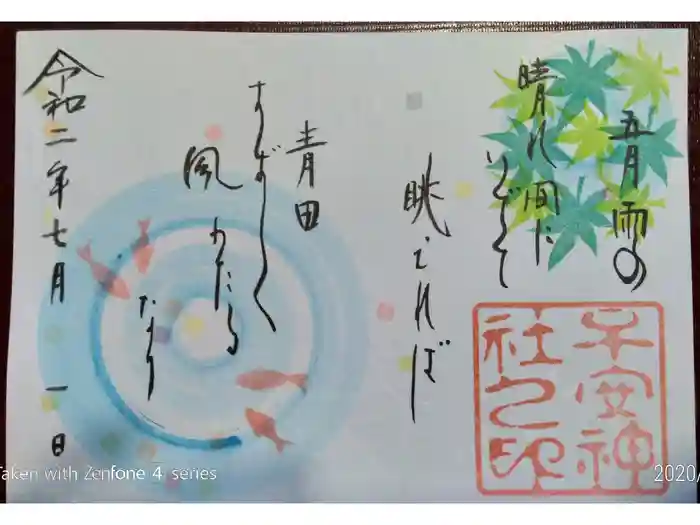 五月雨の
晴れ間に
いでて
眺むれば
青田
すずしく
風わたる
なり
令和二年七月一日
子安神
社之印
Taken with Zenfone 4 series
2020/